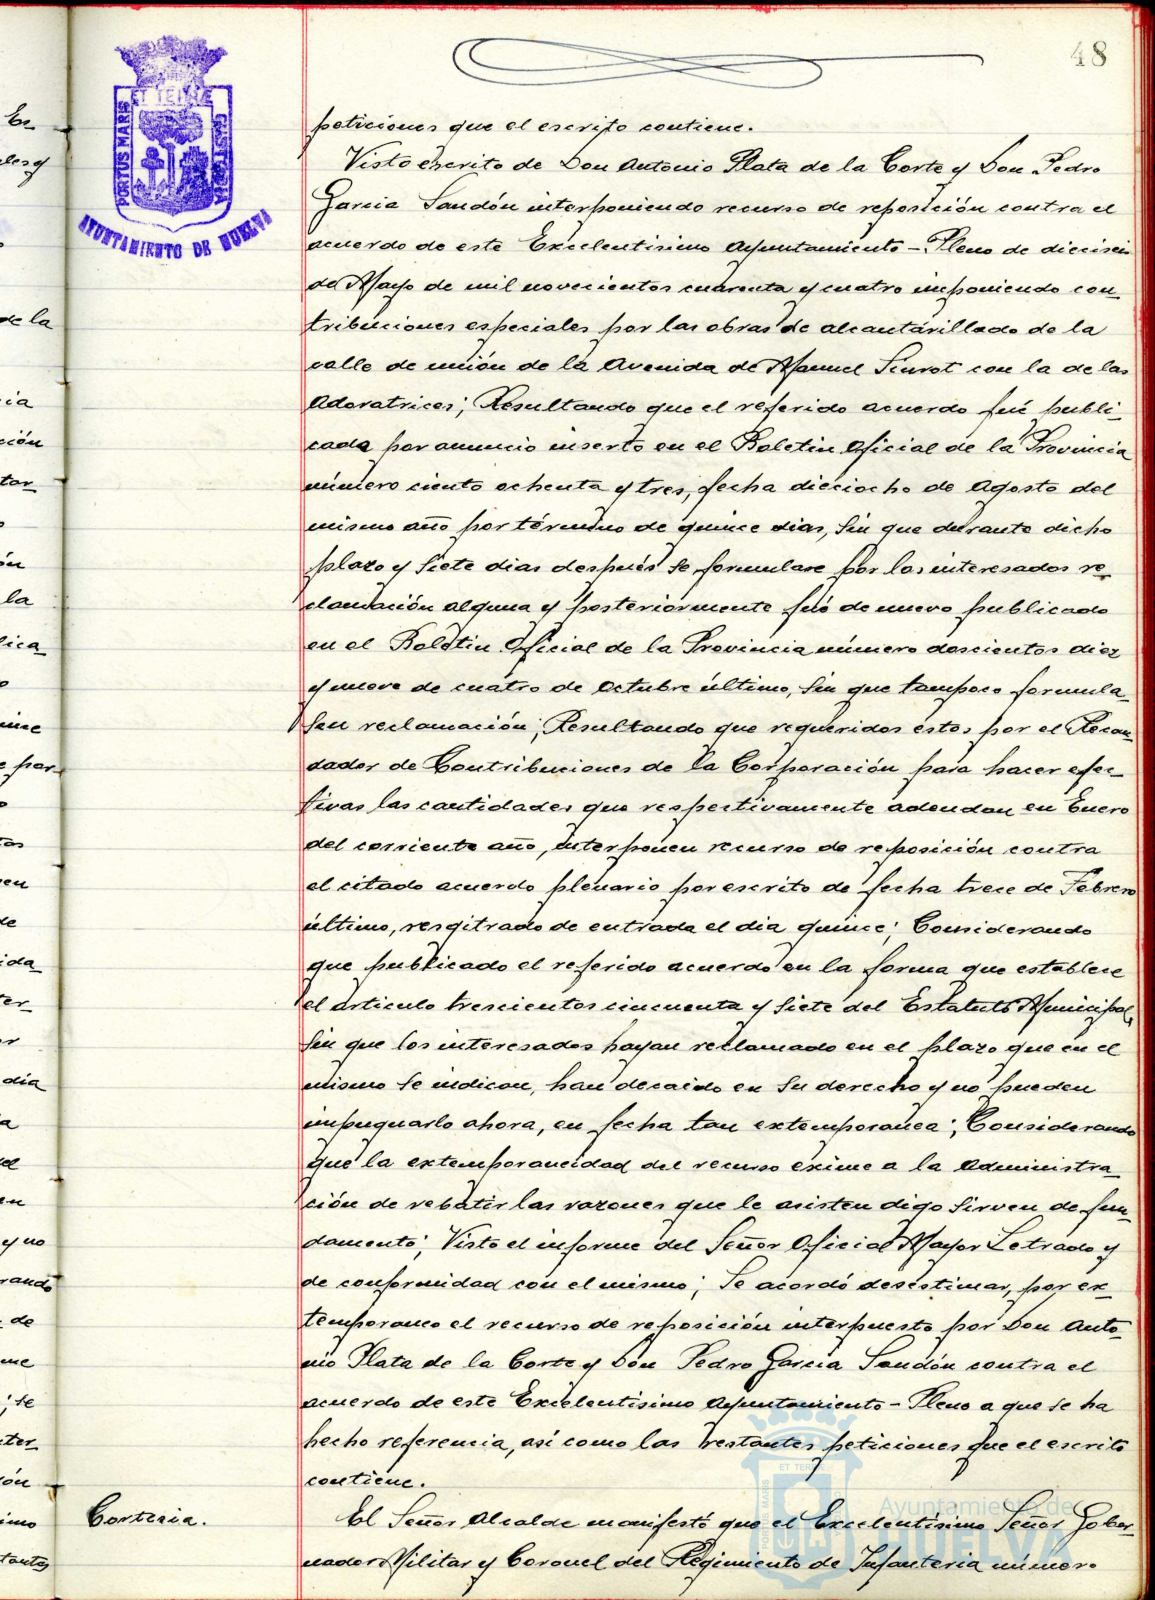 48
PORTUS MARIS ET TERRÆ CUSTODIA
AYUNTAMIENTO DE HUELVA
peticiones que el escrito contiene.
Visto escrito de Don Antonio Plata de la Corte y Don Pedro
Garcia Sandón interponiendo recurso de reposición contra el
acuerdo de este Excelentisimo Ayuntamiento-Pleno de dieciseis
de Mayo de mil novecientos cuarenta y cuatro imponiendo con_
tribuciones especiales por las obras de alcantarillado de la
calle de unión de la Avenida de Manuel Siurot con la de las
Adoratrices; Resultando que el referido acuerdo fué publi_
cado por anuncio inserto en el Boletin Oficial de la Provincia
número ciento ochenta y tres, fecha dieciocho de Agosto del
mismo año por término de quince dias, sin que durante dicho
plazo y siete dias después se formulase por los interesados re_
clamación alguna y posteriormente fué de nuevo publicado
en el Boletin Oficial de la Provincia número doscientos diez
y nueve de cuatro de Octubre último, sin que tampoco formula_
sen reclamación; Resultando que requeridos éstos por el Recau_
dador de Contribuciones de la Corporación para hacer efec_
tivas las cantidades que respectivamente adeudan en Enero
del corriente año, interponen recurso de reposición contra
el citado acuerdo plenario por escrito de fecha trece de Febrero
último, resgitrado de entrada el dia quince; Considerando
que publicado el referido acuerdo en la forma que establece
el articulo trescientos cincuenta y siete del Estatuto Municipal,
sin que los interesados hayan reclamado en el plazo que en el
mismo se indican, han decaido en su derecho y no pueden
impugnarlo ahora, en fecha tan extemporanea; Considerando
que la extemporaneidad del recurso exime a la Administra_
ción de rebatir las razones que le asisten digo sirven de fun_
damento; Visto el informe del Señor Oficial Mayor Letrado y
de conformidad con el mismo; Se acordó desestimar, por ex_
temporaneo el recurso de reposición interpuesto por Don Anto_
nio Plata de la Corte y Don Pedro Garcia Sandón contra el
acuerdo de este Excelentisimo Ayuntamiento-Pleno a que se ha
hecho referencia, así como las restantes peticiones que el escrito
contiene.
Corteria.
El Señor Alcalde manifestó que el Excelentisimo Señor Gober_
nador Militar y Coronel del Regimiento de Infanteria número
Ayuntamiento de
HUELVA